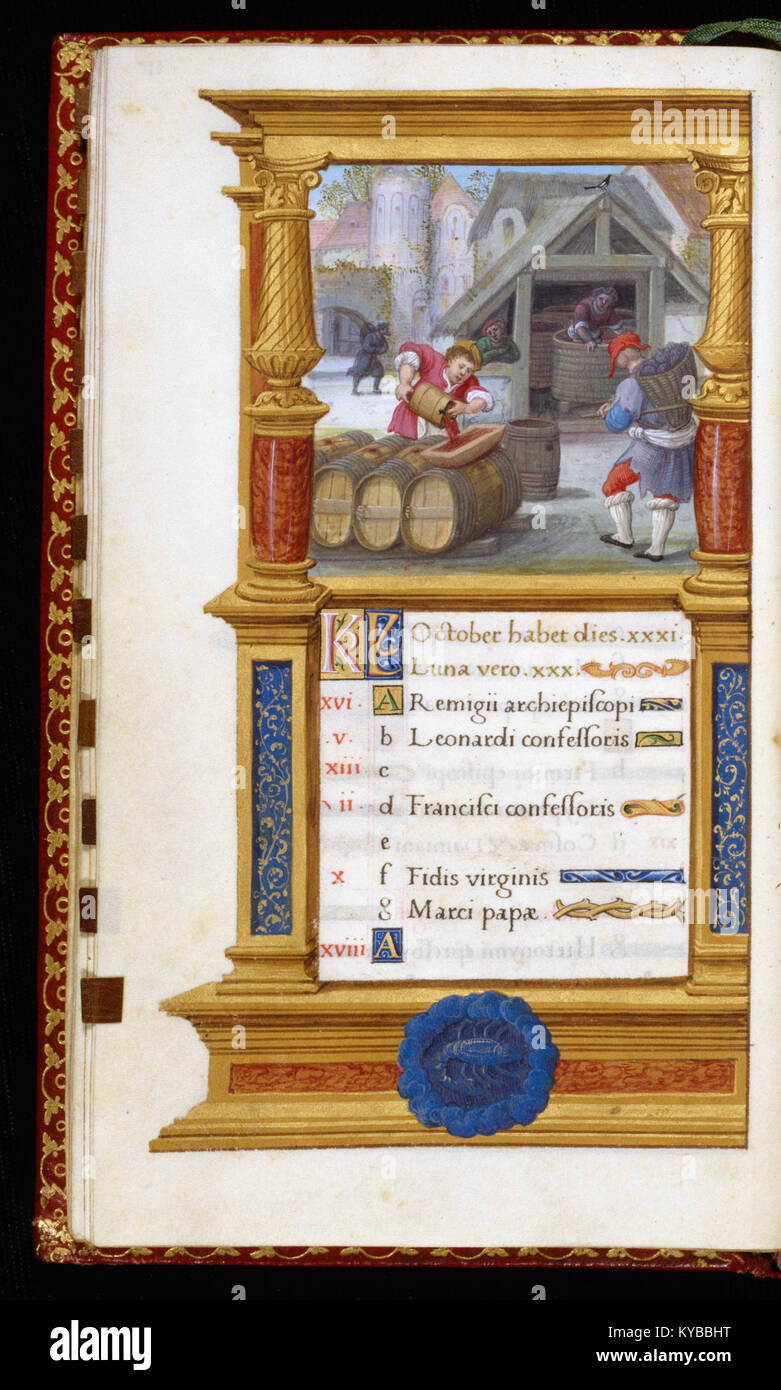 KL October habet dies .xxxi.
Luna vero .xxx.
xvi . A Remigii archiepiſcopi
. v . b Leonardi confeſſoris
xiii c
ii . d Franciſci confeſſoris
e
x f Fidis virginis
g Marci papæ .
xviii A
alamy
Image ID: KYBBHT
www.alamy.com